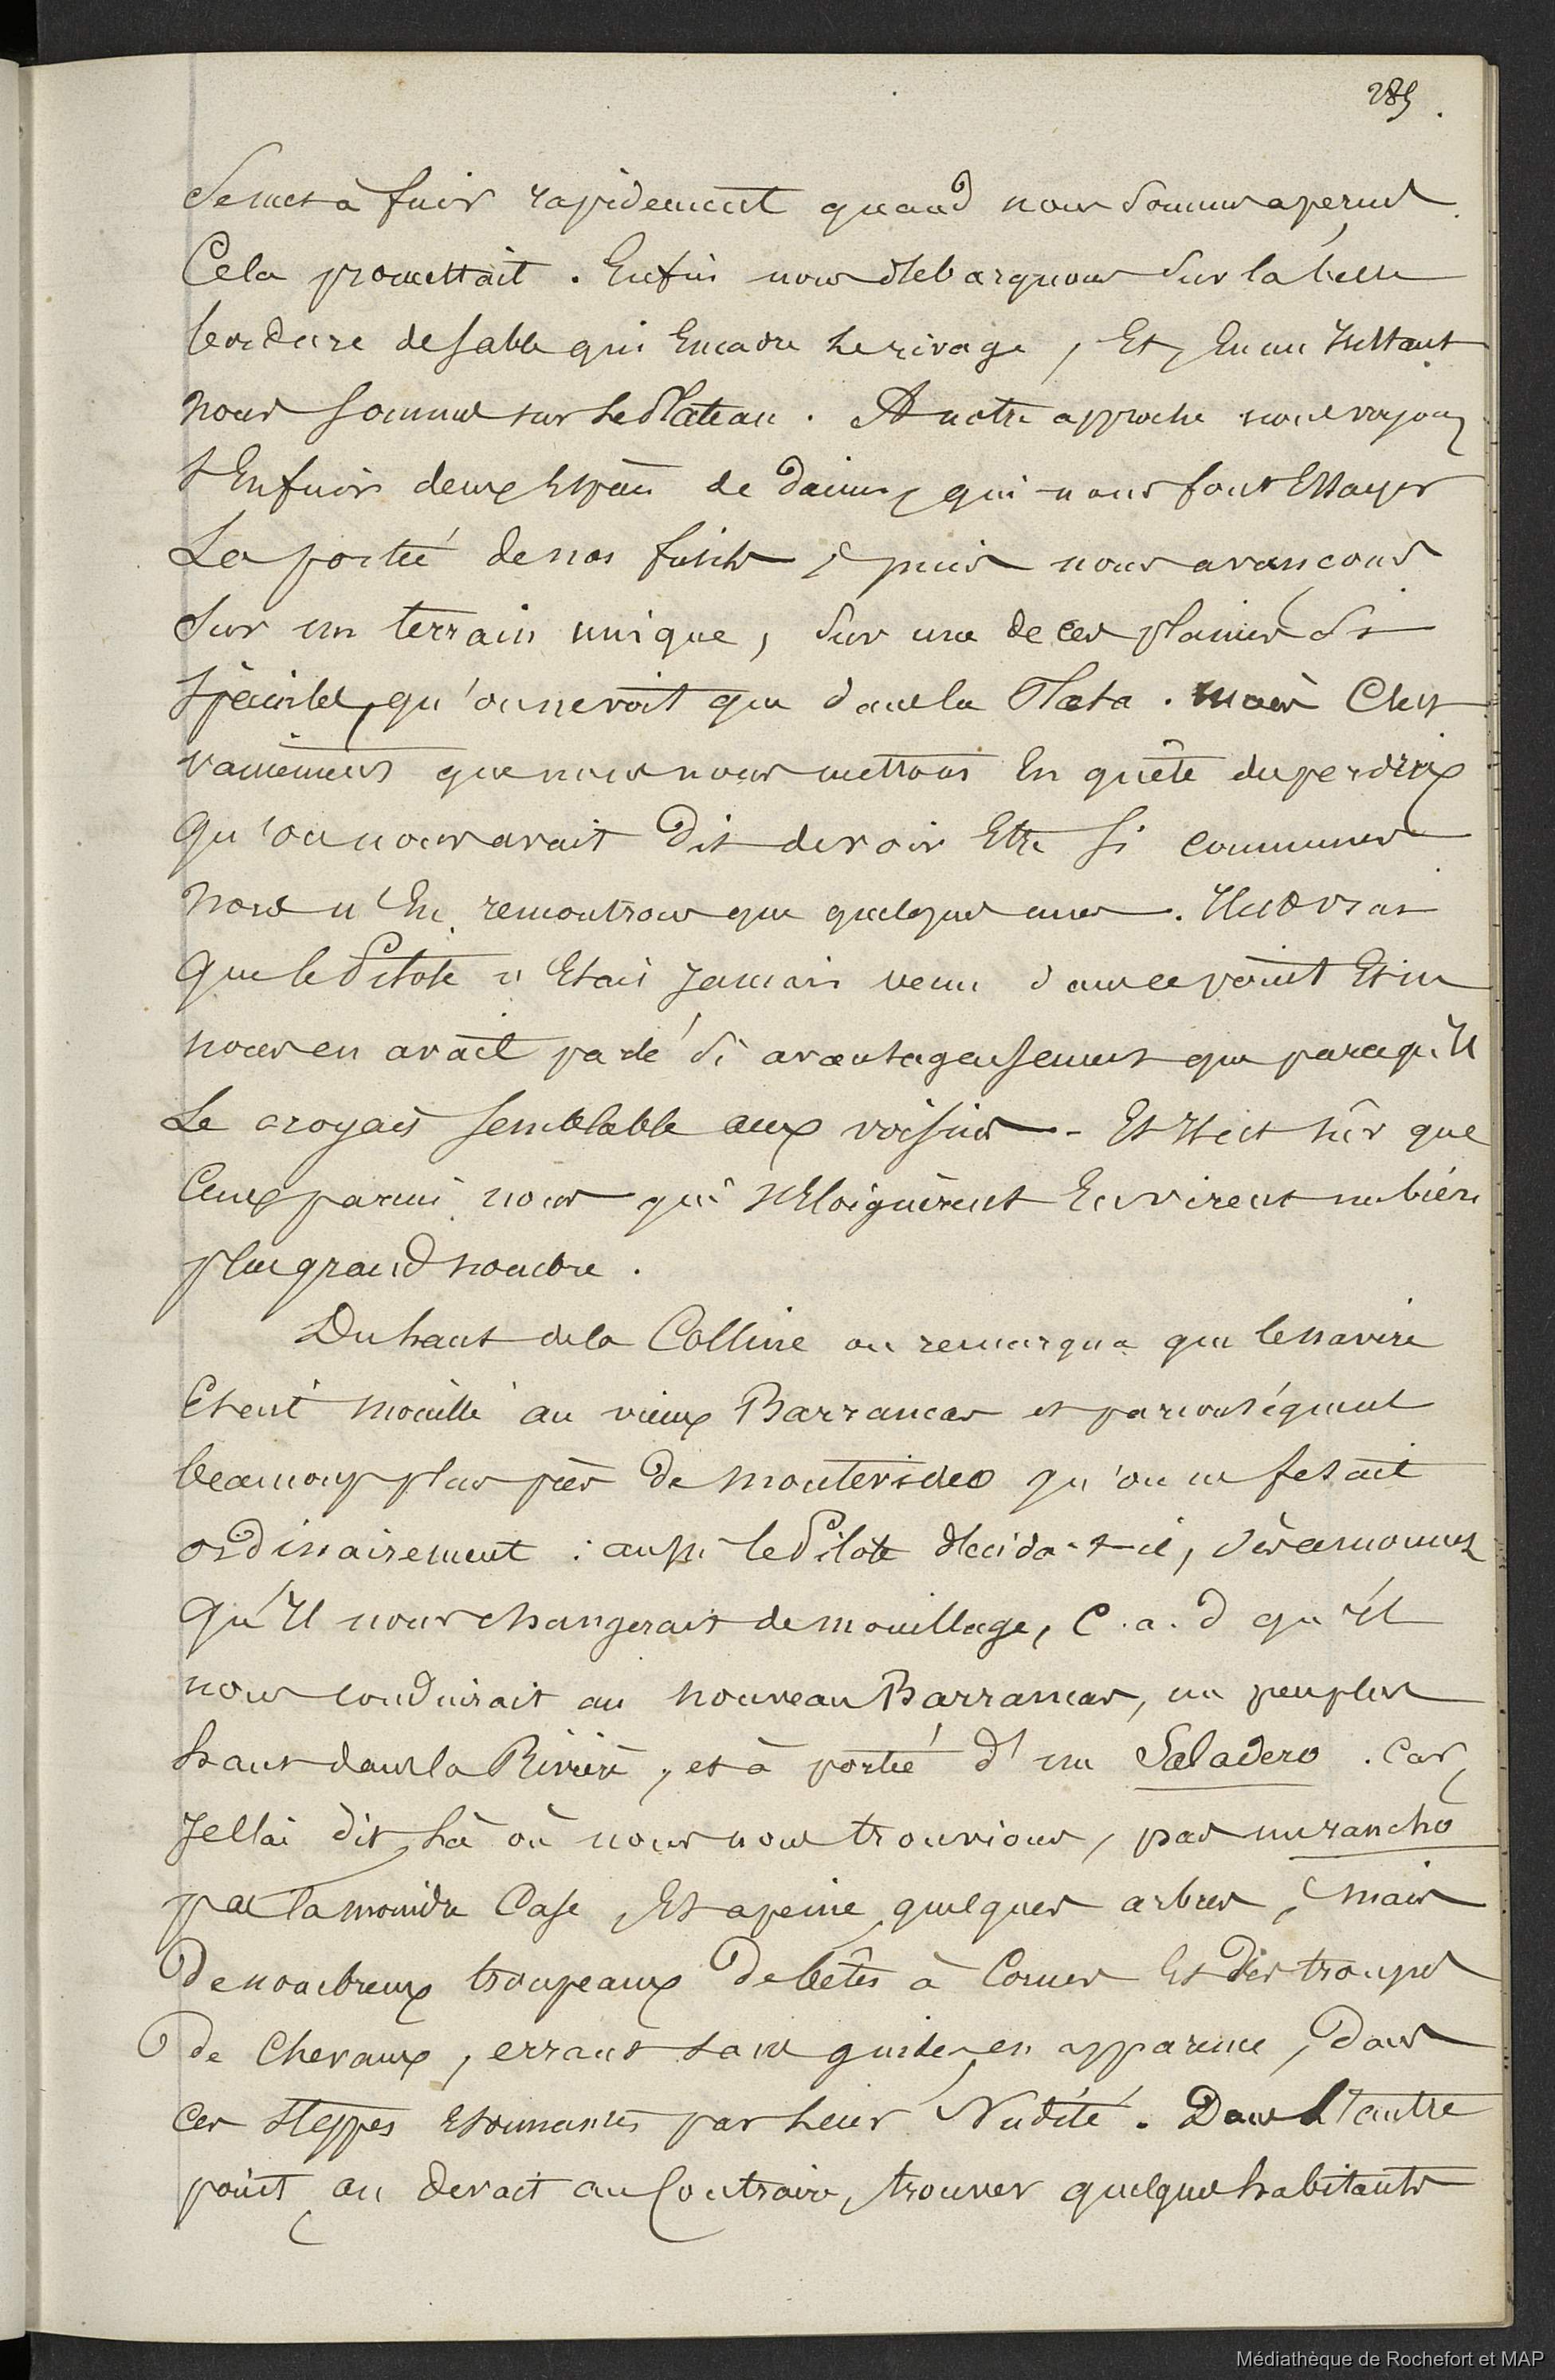 285.
Se met à fuir rapidement quand nous sommes aperçus.
Cela promettait. Enfin nous débarquons sur la belle
bordure de sable qui Encadre le rivage, Et, En un Instant
nous sommes sur le Plateau. A notre approche nous voyons
s'Enfuir deux Espèces de Daims, qui nous font Essayer
La portée de nos fusils, puis nous avançons
Sur un terrain unique, Sur une de ces plaines si
spéciales, qu'on ne voit que dans la Plata. Mais C'est
vainement que nous nous mettons En quête du perdrix
Qu'on nous avait Dit devoir Etre si communes
nous n'En remontrons que quelques unes. Il est vrai
Que le Pilote n'Etait Jamais venu dans ce point Et ne
nous en avait parlé si avantageusement que parce qu'Il
Le croyait semblable aux voisins - Et Il est sûr que
Ceux parmi nous qui s'Eloignèrent En virent un bien
plus grand nombre.
Du haut de la Colline on remarqua que le navire
Etait mouillé au vieux Barrancas et par conséquent
beaucoup plus près de montevideo qu'on ne fesait
ordinairement : aussi le Pilote décida-t-il, dès ce moment
Qu'Il nous changerait de mouillage, C.a.d qu'Il
nous conduirait au nouveau Barrancas, un peu plus
haut dans la Rivière, et à portée d'un Saladero. Car,
Je l'ai dit, Là où nous nous trouvions, pas un rancho
pas la moindre Case, Et a peine quelques arbres, mais
De nombreux troupeaux De bêtes à Cornes Et Des troupes
De Chevaux, errant sans guide en apparence, Dans
Ces Steppes Etonnantes par Leur Nudité. Dans L'autre
point, on Devait au Contraire, trouver quelques habitants
Médiathèque de Rochefort et MAP